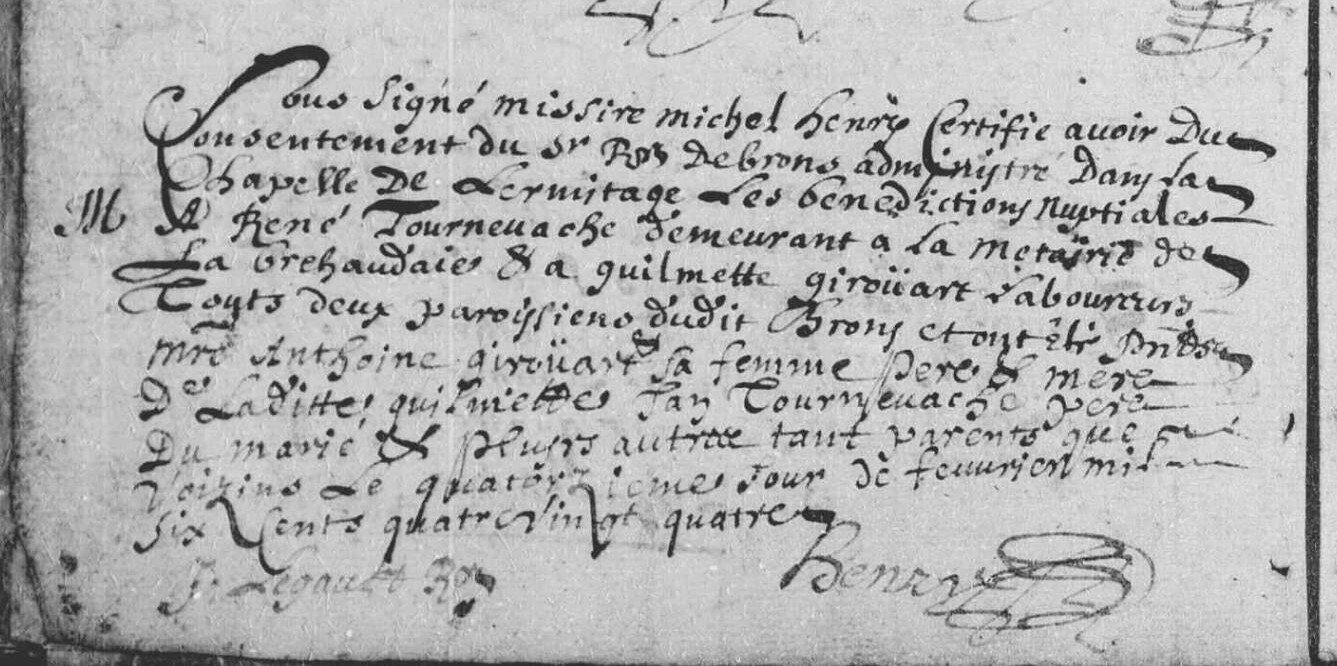 Sous signé missire michel henry Certifie avoir Du
Consentement du Sr Rr De brons administré Dans la
Chapelle De Lermitage Les benedictions Nuptiales
M A René Tournevache demeurant a la metairie de
La brehaudaie & a guilmette giroüart Laboureurs
Touts deux paroissiens dudit Brons et ont été pnts
Mre Anthoine giroüart & sa femme pere & mere
De Laditte guilmette Jan Tournevache pere
Du marié & plusrs autres tant parents que
Voizins Le quatorzieme Jour de feuvrier mil
six Cents quatre vingt quatre
Henry
Legault Rr